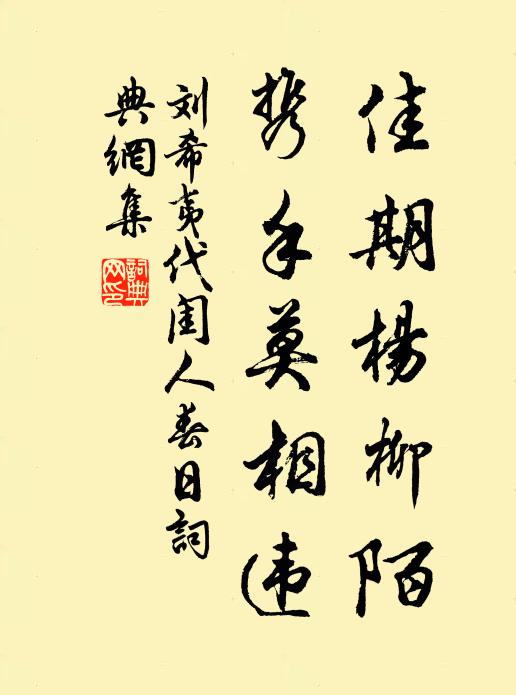 佳期楊柳陌
携手莫相违
刘希夷代闺人春日詞
典網集
詞典網印